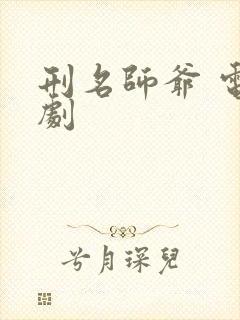 刑名師爺 電
劇
兮月琛兒